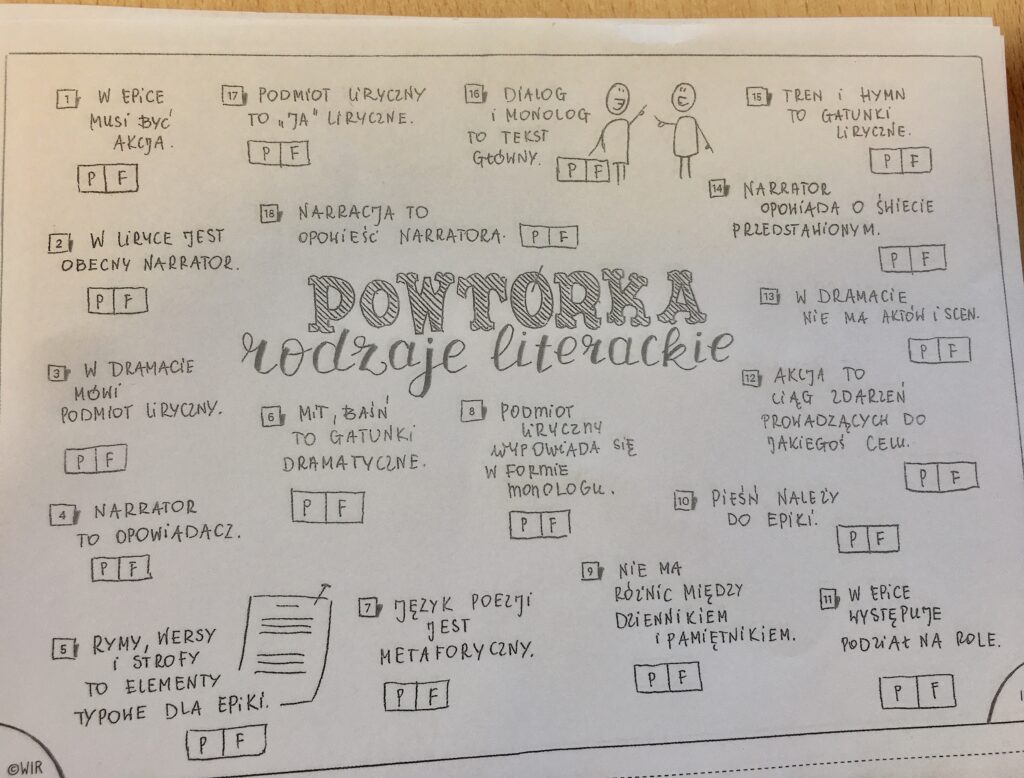 1 W EPICE
MUSI BYĆ
AKCJA.
P F
17 PODMIOT LIRYCZNY
TO „JA" LIRYCZNE.
P F
16 DIALOG
I MONOLOG
TO TEKST
GŁÓWNY.
P F
15 TREN I HYMN
TO GATUNKI
LIRYCZNE.
P F
2 W LIRYCE JEST
OBECNY NARRATOR.
P F
18 NARRACJA TO
OPOWIEŚĆ NARRATORA.
P F
14 NARRATOR
OPOWIADA O ŚWIECIE
PRZEDSTAWIONYM.
P F
POWTÓRKA
rodzaje literackie
13 W DRAMACIE
NIE MA AKTÓW I SCEN.
P F
3 W DRAMACIE
MÓWI
PODMIOT LIRYCZNY.
P F
6 MIT, BAŚŃ
TO GATUNKI
DRAMATYCZNE.
P F
8 PODMIOT
LIRYCZNY
WYPOWIADA SIĘ
W FORMIE
MONOLOGU.
P F
12 AKCJA TO
CIĄG ZDARZEŃ
PROWADZĄCYCH DO
JAKIEGOŚ CELU.
P F
4 NARRATOR
TO OPOWIADACZ.
P F
10 PIEŚŃ NALEŻY
DO EPIKI.
P F
5 RYMY, WERSY
I STROFY
TO ELEMENTY
TYPOWE DLA EPIKI.
P F
7 JĘZYK POEZJI
JEST
METAFORYCZNY.
P F
9 NIE MA
RÓŻNIC MIĘDZY
DZIENNIKIEM
I PAMIĘTNIKIEM.
P F
11 W EPICE
WYSTĘPUJE
PODZIAŁ NA ROLE.
P F
©WIR